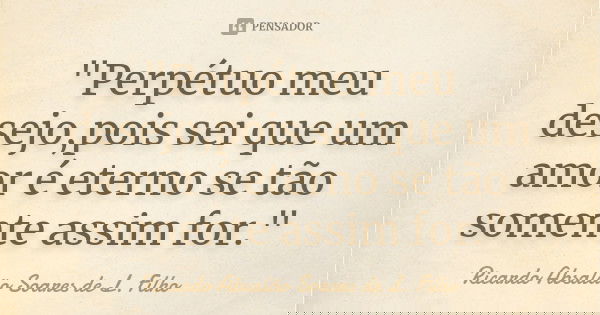 PENSADOR
"Perpétuo meu
desejo,pois sei que um
amor é eterno se tão
somente assim for."
Ricardo Absalão Soares de L. Filho